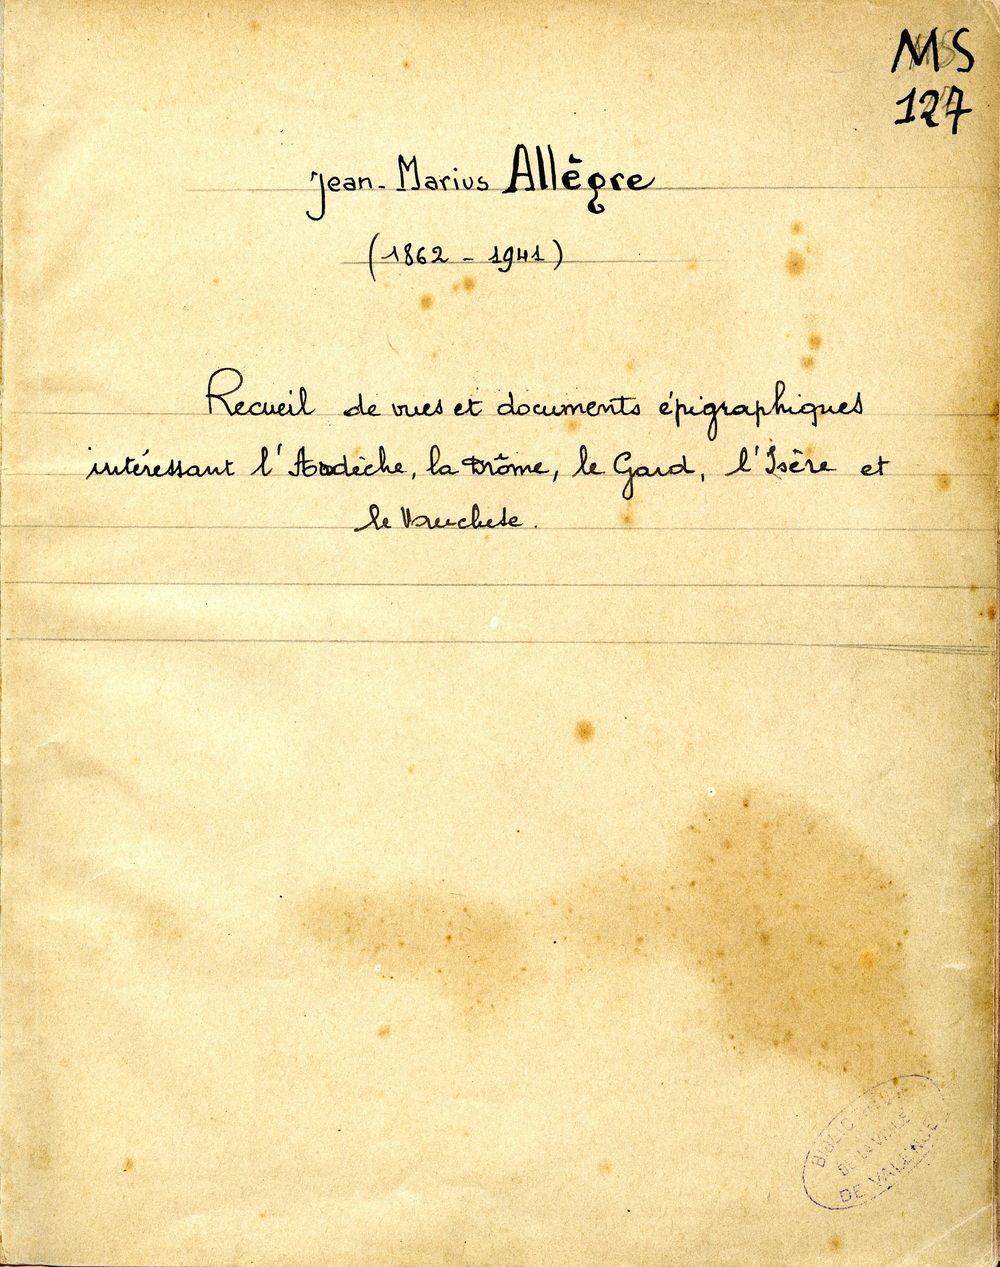 MS
127
Jean-Marius Allègre
(1862 - 1941)
Recueil de vues et documents épigraphiques
intéressant l'Ardèche, la Drôme, le Gard, l'Isère et
le Vaucluse.
DE LA VILLE
DE VALENCE